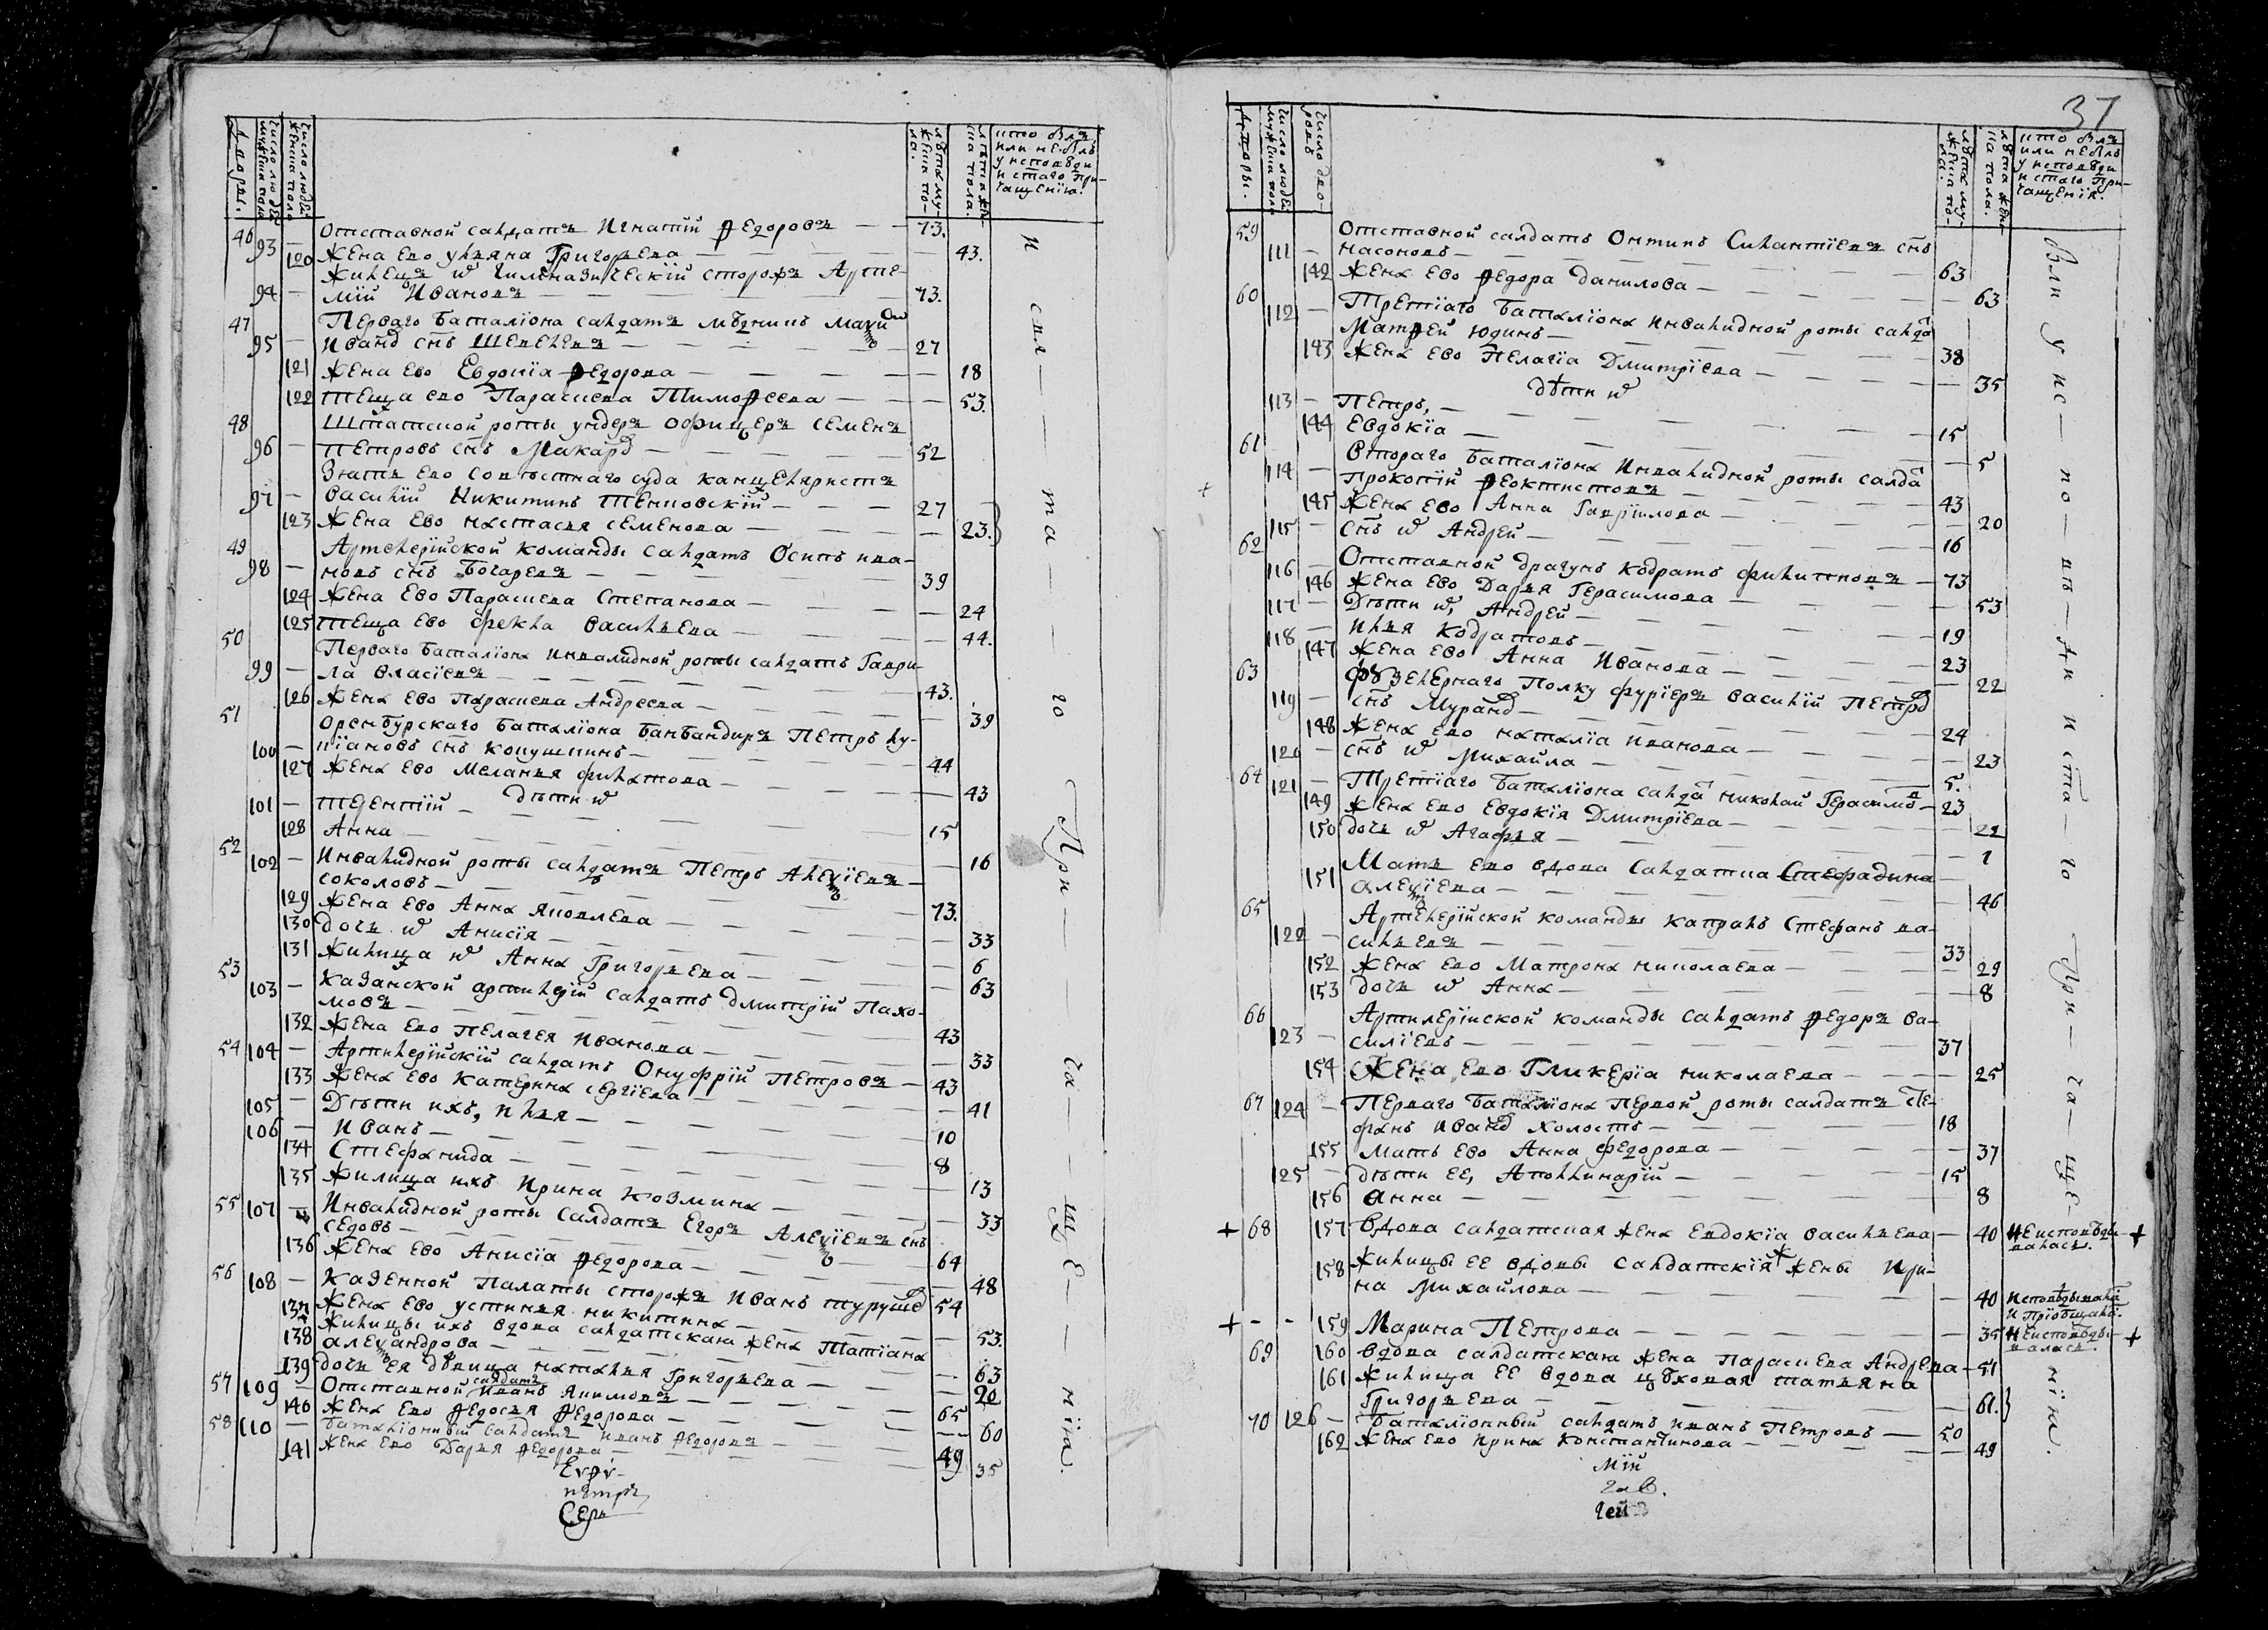 37
Дворы.
Число людей мужеска пола
Число людей женска пола
лета мужеска пола.
лета женска пола.
кто былъ или не былъ у исповеди и стаго причащенiя.
46 93 — Отставной салдатъ Игнатiй Ѳедоровъ — — 73.
120 Жена ево ульяна Григорьева — 43.
Жилецъ ѿ Гимназическiй сторожъ Арте-
94 — мiй Ивановъ — 73.
47 Перваго баталiона салдатъ
95 — Иванов снъ Шевелевъ — 27
121 Жена ево Евдокiя Ѳедорова — 18
122 теща ево Параскева Тимоѳеева — 53.
48 Штатской роты ундеръ офицеръ семенъ
96 — петровъ снъ Макаров — 52
Зять ево Совестнаго суда канцеляристъ
97 — василiй Никитинъ — 27
123 Жена ево настасья семенова — 23.
49 Артелерiйской команды салдатъ Осипъ ива-
98 — новъ снъ Бочаревъ — 39
124 Жена ево Параскева Степанова — 24
125 теща ево Фекла васильева — 44.
50 Перваго баталiона инвалидной роты салдатъ Гаври-
99 — ла власiевъ — 43.
126 Жена ево Параскева Андреева — 39
51 Оренбурскаго баталiона банбандиръ Петръ лу-
100 — кiановъ снъ кокушкинъ — 44
127 Жена ево Меланья филатова — 43
дети ѿ
101 — терентiй — 15
128 Анна — 16
52 102 — Инвалидной роты салдатъ Петръ Алеѯiевъ —
соколовъ — 73.
129 Жена ево Анна Яковлева — 33
130 дочь ѿ Анисiя — 6
131 Жилица ѿ Анна Григорьева — 63
53 103 — Казанской артилерiи салдатъ дмитрiй Пахо-
мовъ — 43
132 Жена ево Пелагея Иванова — 33
54 104 — Артилерiйскiй салдатъ Онуфрiй Петровъ — 43
133 Жена ево катерина сергiева — 41
105 — Дети ихъ, илья — 10
106 — Иванъ — 8
134 Стефанида — 13
135 Жилица ихъ Ирина козмина — 33
55 107 — Инвалидной роты салдатъ Егоръ Алеѯiевъ снъ
седовъ — 64
136 Жена ево Анисiя Ѳедорова — 48
56 108 — Казенной палаты сторожъ Иванъ турушев 54
137 Жена ево устинья никитина — 53.
Жилицы ихъ вдова салдатская жена Татiана
138 алеѯандрова — 63
139 дочь ея девица наталья Григорьева — 20
57 109 — Отставной салдатъ Иванъ Якимовъ — 65
140 Жена ево Ѳедосья Ѳедорова — 60
58 110 — баталiонный салдатъ иванъ Ѳедоровъ — 49
141 Жена ево Дарья Ѳедорова — 35
и спа — та — го При — ча — ще — нiя.
петръ
Серь
Дворы.
Число людей мужеска пола
лета мужеска пола.
лета женска пола.
кто былъ или не былъ у исповеди и стаго причащенiя.
59 Отставной салдатъ Онтипъ Силантiевъ снъ
111 — насоновъ — 63
142 Жена ево Ѳедора данилова — 63
60 112 — Третiаго баталiона инвалидной роты салда
Матѳей юдинъ — 38
143 Жена ево Пелагiа Дмитрiева — 35
дети ѿ
113 — Петръ, — 15
144 Евдокiа — 5
61 Втораго баталiона инвалидной роты салда
114 — Прокопiй Ѳеоктистовъ — 43
145 Жена ево Анна Гаврилова — 20
115 — снъ ѿ Андрей — 16
62 116 — Отставной драгунъ кодратъ филипповъ — 73
146 Жена ево Дарья Герасимова — 53
117 — Дети ѿ, Андрей — 19
118 — илья кодратовъ — 23
147 Жена ево Анна Иванова — 22
63 Фузелернаго полку фуриеръ василiй Петров
119 — снъ Муранов — 24
148 Жена ево наталiа иванова — 23
120 — снъ ѿ Михайла — 5.
64 121 — Третiаго баталiона салда николай Герасимов — 23
149 Жена ево Евдокiя Дмитрiева — 22
150 дочь ѿ Агафья — 1
Мать ево вдова салдатка
151 алеѯiева — 46
65 Артелерiйской команды капралъ Стефанъ ва-
122 — сильевъ — 33
152 Жена ево Матрона николаева — 29
153 дочь ѿ Анна — 8
66 Артилерiйской команды салдатъ Ѳедоръ ва-
123 — силiевъ — 37
154 Жена ево Гликерiа николаева — 25
67 124 — Перваго баталiона первой роты салдатъ сте-
фанъ иванов холостъ — 18
155 Мать ево Анна федорова — 37
125 — дети ее, Аполлинарiй — 15
156 анна — 8
+ 68 157 вдова салдатская жена Евдокiа васильева — 40 неисповеды- +
валась.
158 Жилицы ее вдовы салдатскiя жены Ири-
на Михайлова — 40 исповедывала
и прiобщала.
+ - - 159 Марина Петрова — 35 неисповеды- +
валась.
69 160 вдова салдатская жена Параскева Андрева — 51
161 Жилица ее вдова цеховая татьяна
Григорьева — 61.
70 126 — баталiонный салдатъ иванъ Петровъ — 50
162 Жена ево ирина константинова — 49
были у ис — по — ве — ди и ста — го При — ча — ще — нiя.
мiй
гав.
гей